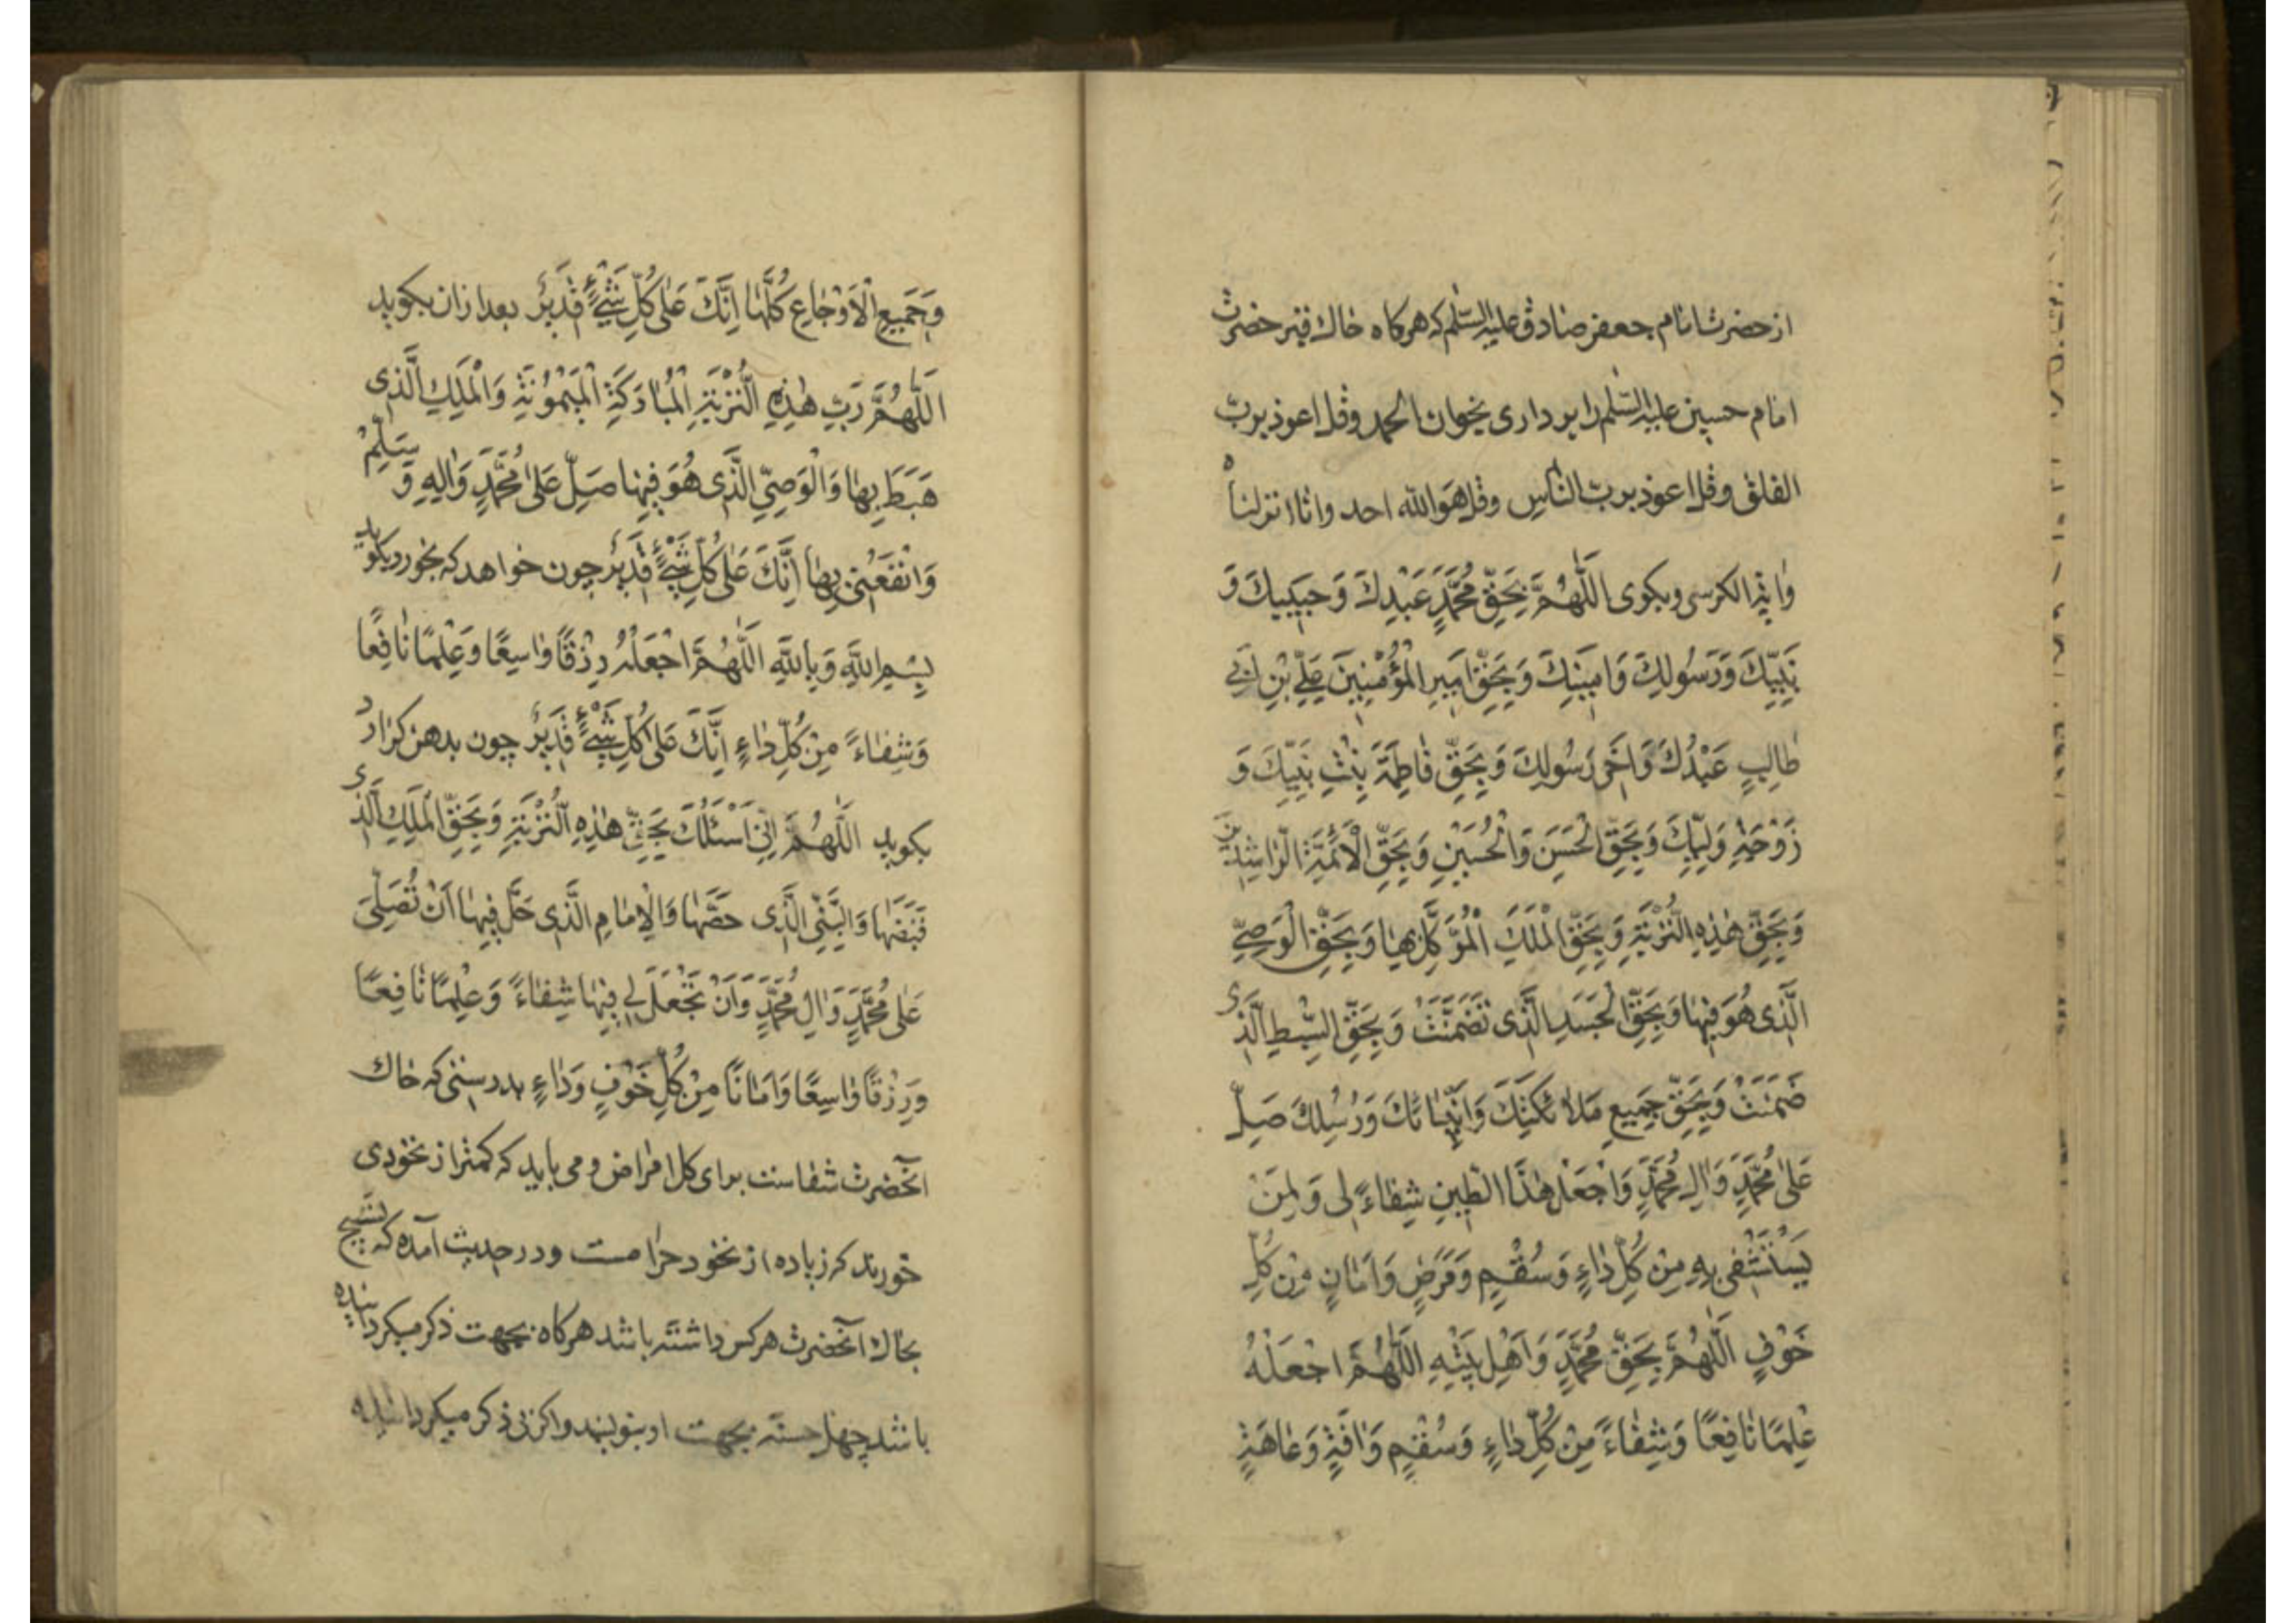 از حضرت امام جعفر صادق علیه السّلم که هرکاه خاك قبر حضرت
امام حسین علیه السّلم را برداری بخوان الحمد وقل اعوذ بربّ
الفلق وقل اعوذ بربّ النّاس وقل هَوَ الله احد وانّا انزلناه
وٰایة الکرسی وبکوی اَللّٰهُمَّ بِحَقِّ مُحَمَّدٍ عَبْدِكَ وَحَبیبِكَ وَ
نَبِیِّكَ وَرَسُولِكَ وَاَمینِكَ وَبِحَقِّ اَمیرِ الْمُؤْمِنینَ عَلِیِّ بْنِ اَبی
طٰالِبٍ عَبْدِكَ وَاَخی رَسُولِكَ وَبِحَقِّ فٰاطِمَةَ بِنْتِ نَبِیِّكَ وَ
زَوْجَةِ وَلِیِّكَ وَبِحَقِّ الْحَسَنِ وَالْحُسَیْنِ وَبِحَقِّ الْاَئِمَّةِ الرّٰاشِدینَ
وَبِحَقِّ هٰذِهِ التُّرْبَةِ وَبِحَقِّ الْمَلَكِ الْمُوَکَّلِ بِهٰا وَبِحَقِّ الْوَصِیِّ
الَّذی هُوَ فیهٰا وَبِحَقِّ الْجَسَدِ الَّذی تَضَمَّنَتْ وَبِحَقِّ السِّبْطِ الَّذی
ضَمِنَتْ وَبِحَقِّ جَمیعِ مَلاٰئِکَتِكَ وَاَنْبِیٰائِكَ وَرُسُلِكَ صَلِّ
عَلٰی مُحَمَّدٍ وَاٰلِ مُحَمَّدٍ وَاجْعَلْ هٰذَا الطّینَ شِفٰاءً لی وَلِمَنْ
یَسْتَشْفی بِهِ مِنْ کُلِّ دٰاءٍ وَسُقْمٍ وَمَرَضٍ وَاَمٰانٍ مِنْ کُلِّ
خَوْفٍ اَللّٰهُمَّ بِحَقِّ مُحَمَّدٍ وَاَهْلِ بَیْتِهِ اَللّٰهُمَّ اجْعَلْهُ
عِلْمًا نٰافِعًا وَشِفٰاءً مِنْ کُلِّ دٰاءٍ وَسُقْمٍ وَاٰفَةٍ وَعٰاهَةٍ
وَجَمیعِ الْاَوْجٰاعِ کُلِّهٰا اِنَّكَ عَلٰی کُلِّ شَیْءٍ قَدیرٌ بعد ازان بکوید
اَللّٰهُمَّ رَبِّ هٰذِهِ التُّرْبَةِ الْمُبٰارَکَةِ الْمَیْمُونَةِ وَالْمَلَكِ الَّذی
هَبَطَ بِهٰا وَالْوَصِیِّ الَّذی هُوَ فیهٰا صَلِّ عَلٰی مُحَمَّدٍ وَاٰلِهِ وَسَلِّمْ
وَانْفَعْنی بِهٰا اِنَّكَ عَلٰی کُلِّ شَیْءٍ قَدیرٌ چون خواهد که بخورد بکوید
بِسْمِ اللّٰهِ وَبِاللّٰهِ اَللّٰهُمَّ اجْعَلْهُ رِزْقًا وٰاسِعًا وَعِلْمًا نٰافِعًا
وَشِفٰاءً مِنْ کُلِّ دٰاءٍ اِنَّكَ عَلٰی کُلِّ شَیْءٍ قَدیرٌ چون بدهن کزارد
بکوید اَللّٰهُمَّ اِنّی اَسْئَلُكَ بِحَقِّ هٰذِهِ التُّرْبَةِ وَبِحَقِّ الْمَلَكِ الَّذی
قَبَضَهٰا وَالنَّبِیِّ الَّذی حَضَّهٰا وَالْاِمٰامِ الَّذی حَلَّ فیهٰا اَنْ تُصَلِّیَ
عَلٰی مُحَمَّدٍ وَاٰلِ مُحَمَّدٍ وَاَنْ تَجْعَلَ لی فیهٰا شِفٰاءً وَعِلْمًا نٰافِعًا
وَرِزْقًا وٰاسِعًا وَاَمٰانًا مِنْ کُلِّ خَوْفٍ وَدٰاءٍ بدرستی که خاك
آنحضرت شفاست برای کل امراض ومی باید که کمتر از نخودی
خورند که زیاده از نخود حرامست ودر حدیث آمده که تسبیح
بخاك آنحضرت هرکس داشته باشد هرکاه بجهت ذکر میکردانیده
باشد چهل حسنه بجهت او بنویسند واکر بی ذکر میکردانیده